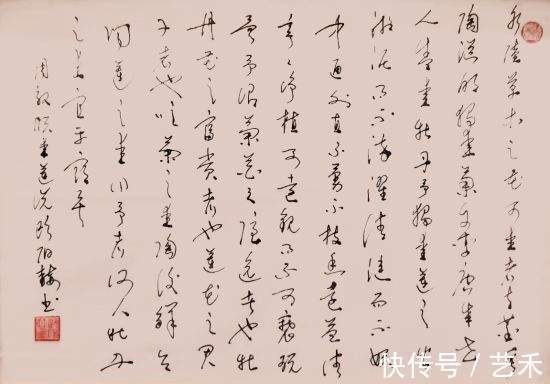 水陆草木之花可爱者甚蕃
陶渊明独爱菊自李唐来世
人盛爱牡丹予独爱莲之出
淤泥而不染濯清涟而不妖
中通外直不蔓不枝香远益清
亭亭净植可远观而不可亵玩
焉予谓菊花之隐逸者也牡
丹花之富贵者也莲花之君
子者也噫菊之爱陶后鲜有
闻莲之爱同予者何人牡丹
之爱宜乎众矣
周敦颐爱莲说 书
快传号 / 艺禾